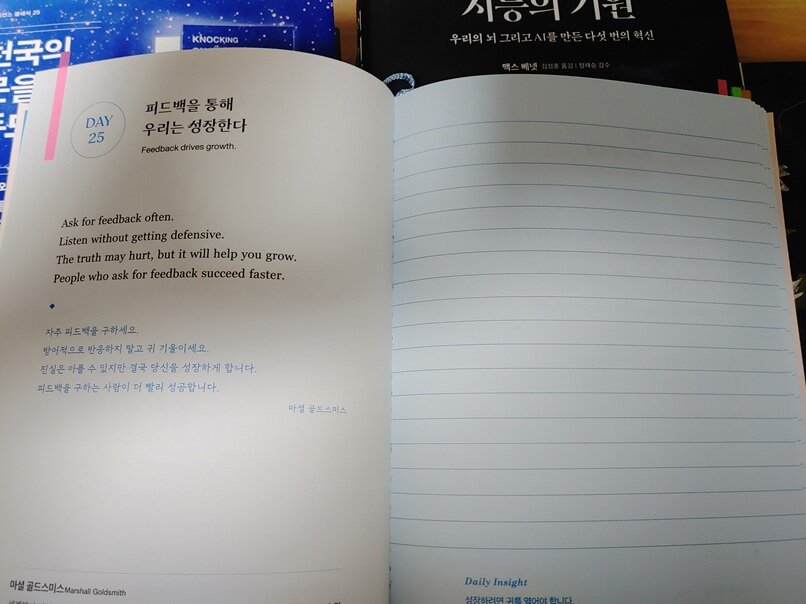 천국의
KNOCKING
지능의 기원
우리의 뇌 그리고 AI를 만든 다섯 번의 혁신
맥스 베넷 김성훈 옮김 | 정재승 감수
DAY
25
피드백을 통해
우리는 성장한다
Feedback drives growth.
Ask for feedback often.
Listen without getting defensive.
The truth may hurt, but it will help you grow.
People who ask for feedback succeed faster.
자주 피드백을 구하세요.
방어적으로 반응하지 말고 귀 기울이세요.
진실은 아플 수 있지만 결국 당신을 성장하게 합니다.
피드백을 구하는 사람이 더 빨리 성공합니다.
마셜 골드스미스
마셜 골드스미스 Marshall Goldsmith
Daily Insight
성장하려면 귀를 열어야 합니다